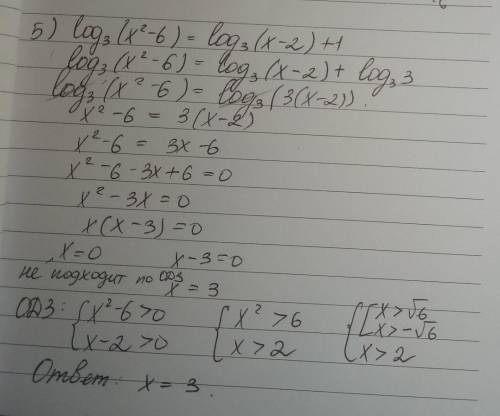 5) log₃(x²-6) = log₃(x-2)+1
log₃(x²-6) = log₃(x-2) + log₃3
log₃(x²-6) = log₃(3(x-2)).
x²-6 = 3(x-2)
x²-6 = 3x-6
x²-6-3x+6=0
x²-3x=0
x(x-3)=0
x=0 x-3=0
не подходит по ОДЗ x=3
ОДЗ: { x²-6>0 { x²>6 { [ x>√6
x-2>0 x>2 x>-√6
x>2
Ответ: x=3.